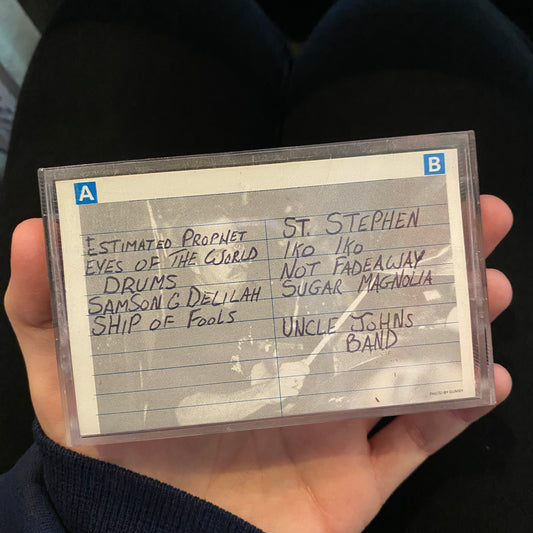 A
B
ESTIMATED PROPHET
EYES OF THE WORLD
DRUMS
SAMSON & DELILAH
SHIP OF FOOLS
ST. STEPHEN
IKO IKO
NOT FADEAWAY
SUGAR MAGNOLIA
UNCLE JOHNS
BAND